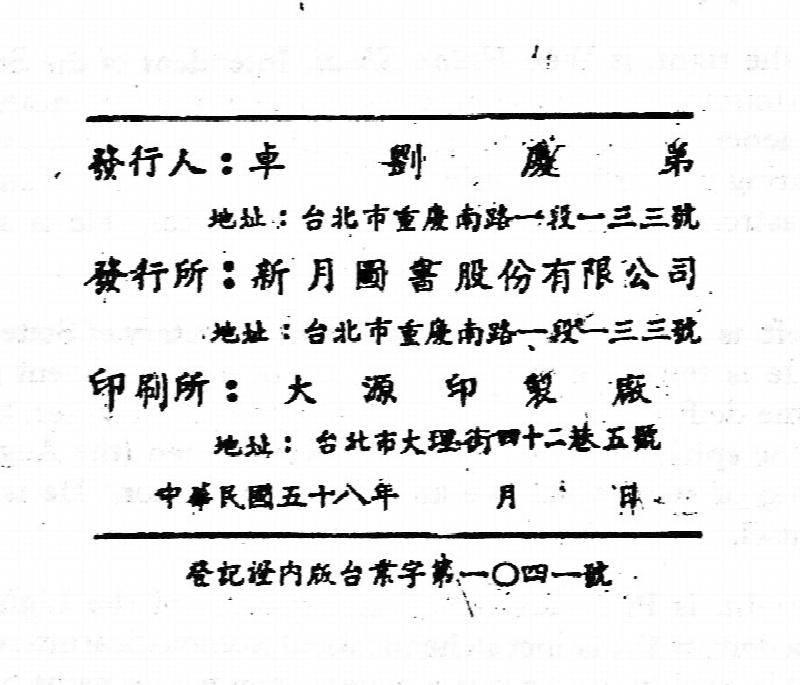 發行人：卓劉慶弟
地址：台北市重慶南路一段一三三號
發行所：新月圖書股份有限公司
地址：台北市重慶南路一段一三三號
印刷所：大源印製廠
地址：台北市大理街四十二巷五號
中華民國五十八年　月　日
登記證內版台業字第一〇四一號